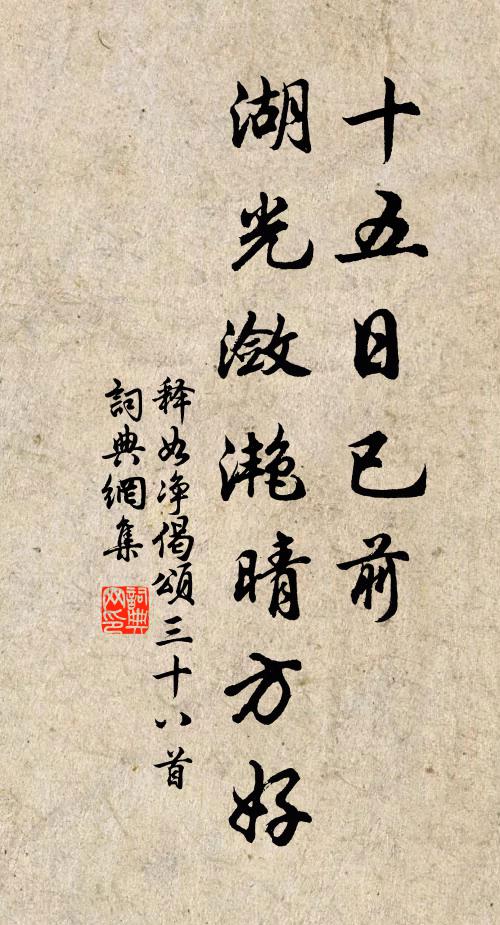 十五日已前
湖光瀲灔晴方好
释如净偈頌三十八首
詞典網集
詞典网印